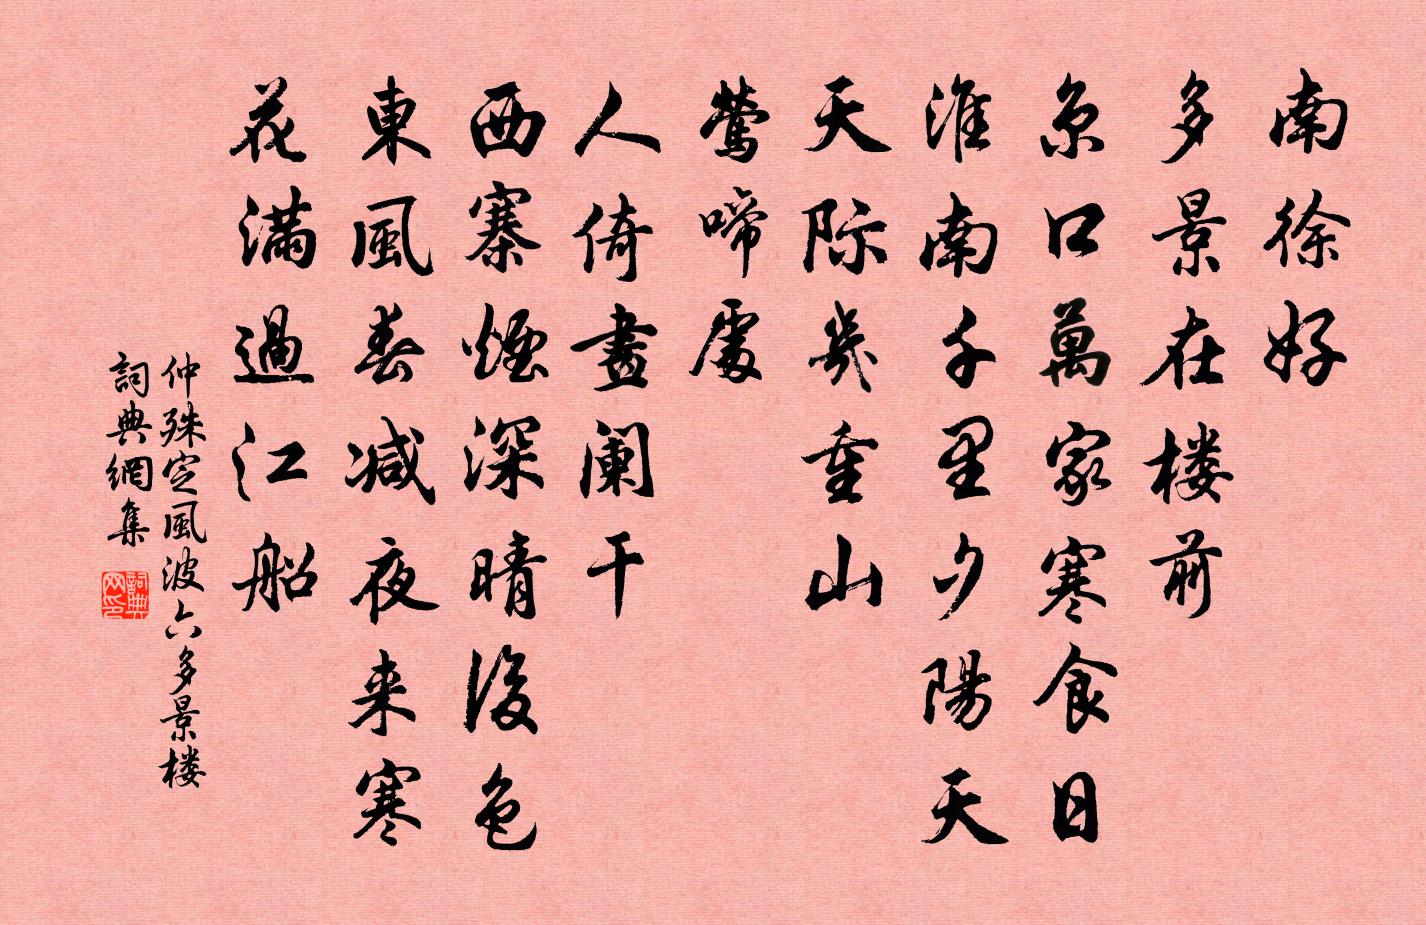 南徐好
多景在楼前
京口萬家寒食日
淮南千里夕陽天
天际幾重山
鶯啼處
人倚畫阑干
西寨煙深晴後色
東風春减夜来寒
花满過江船
仲殊定風波六多景楼
詞典網集
詞典网印